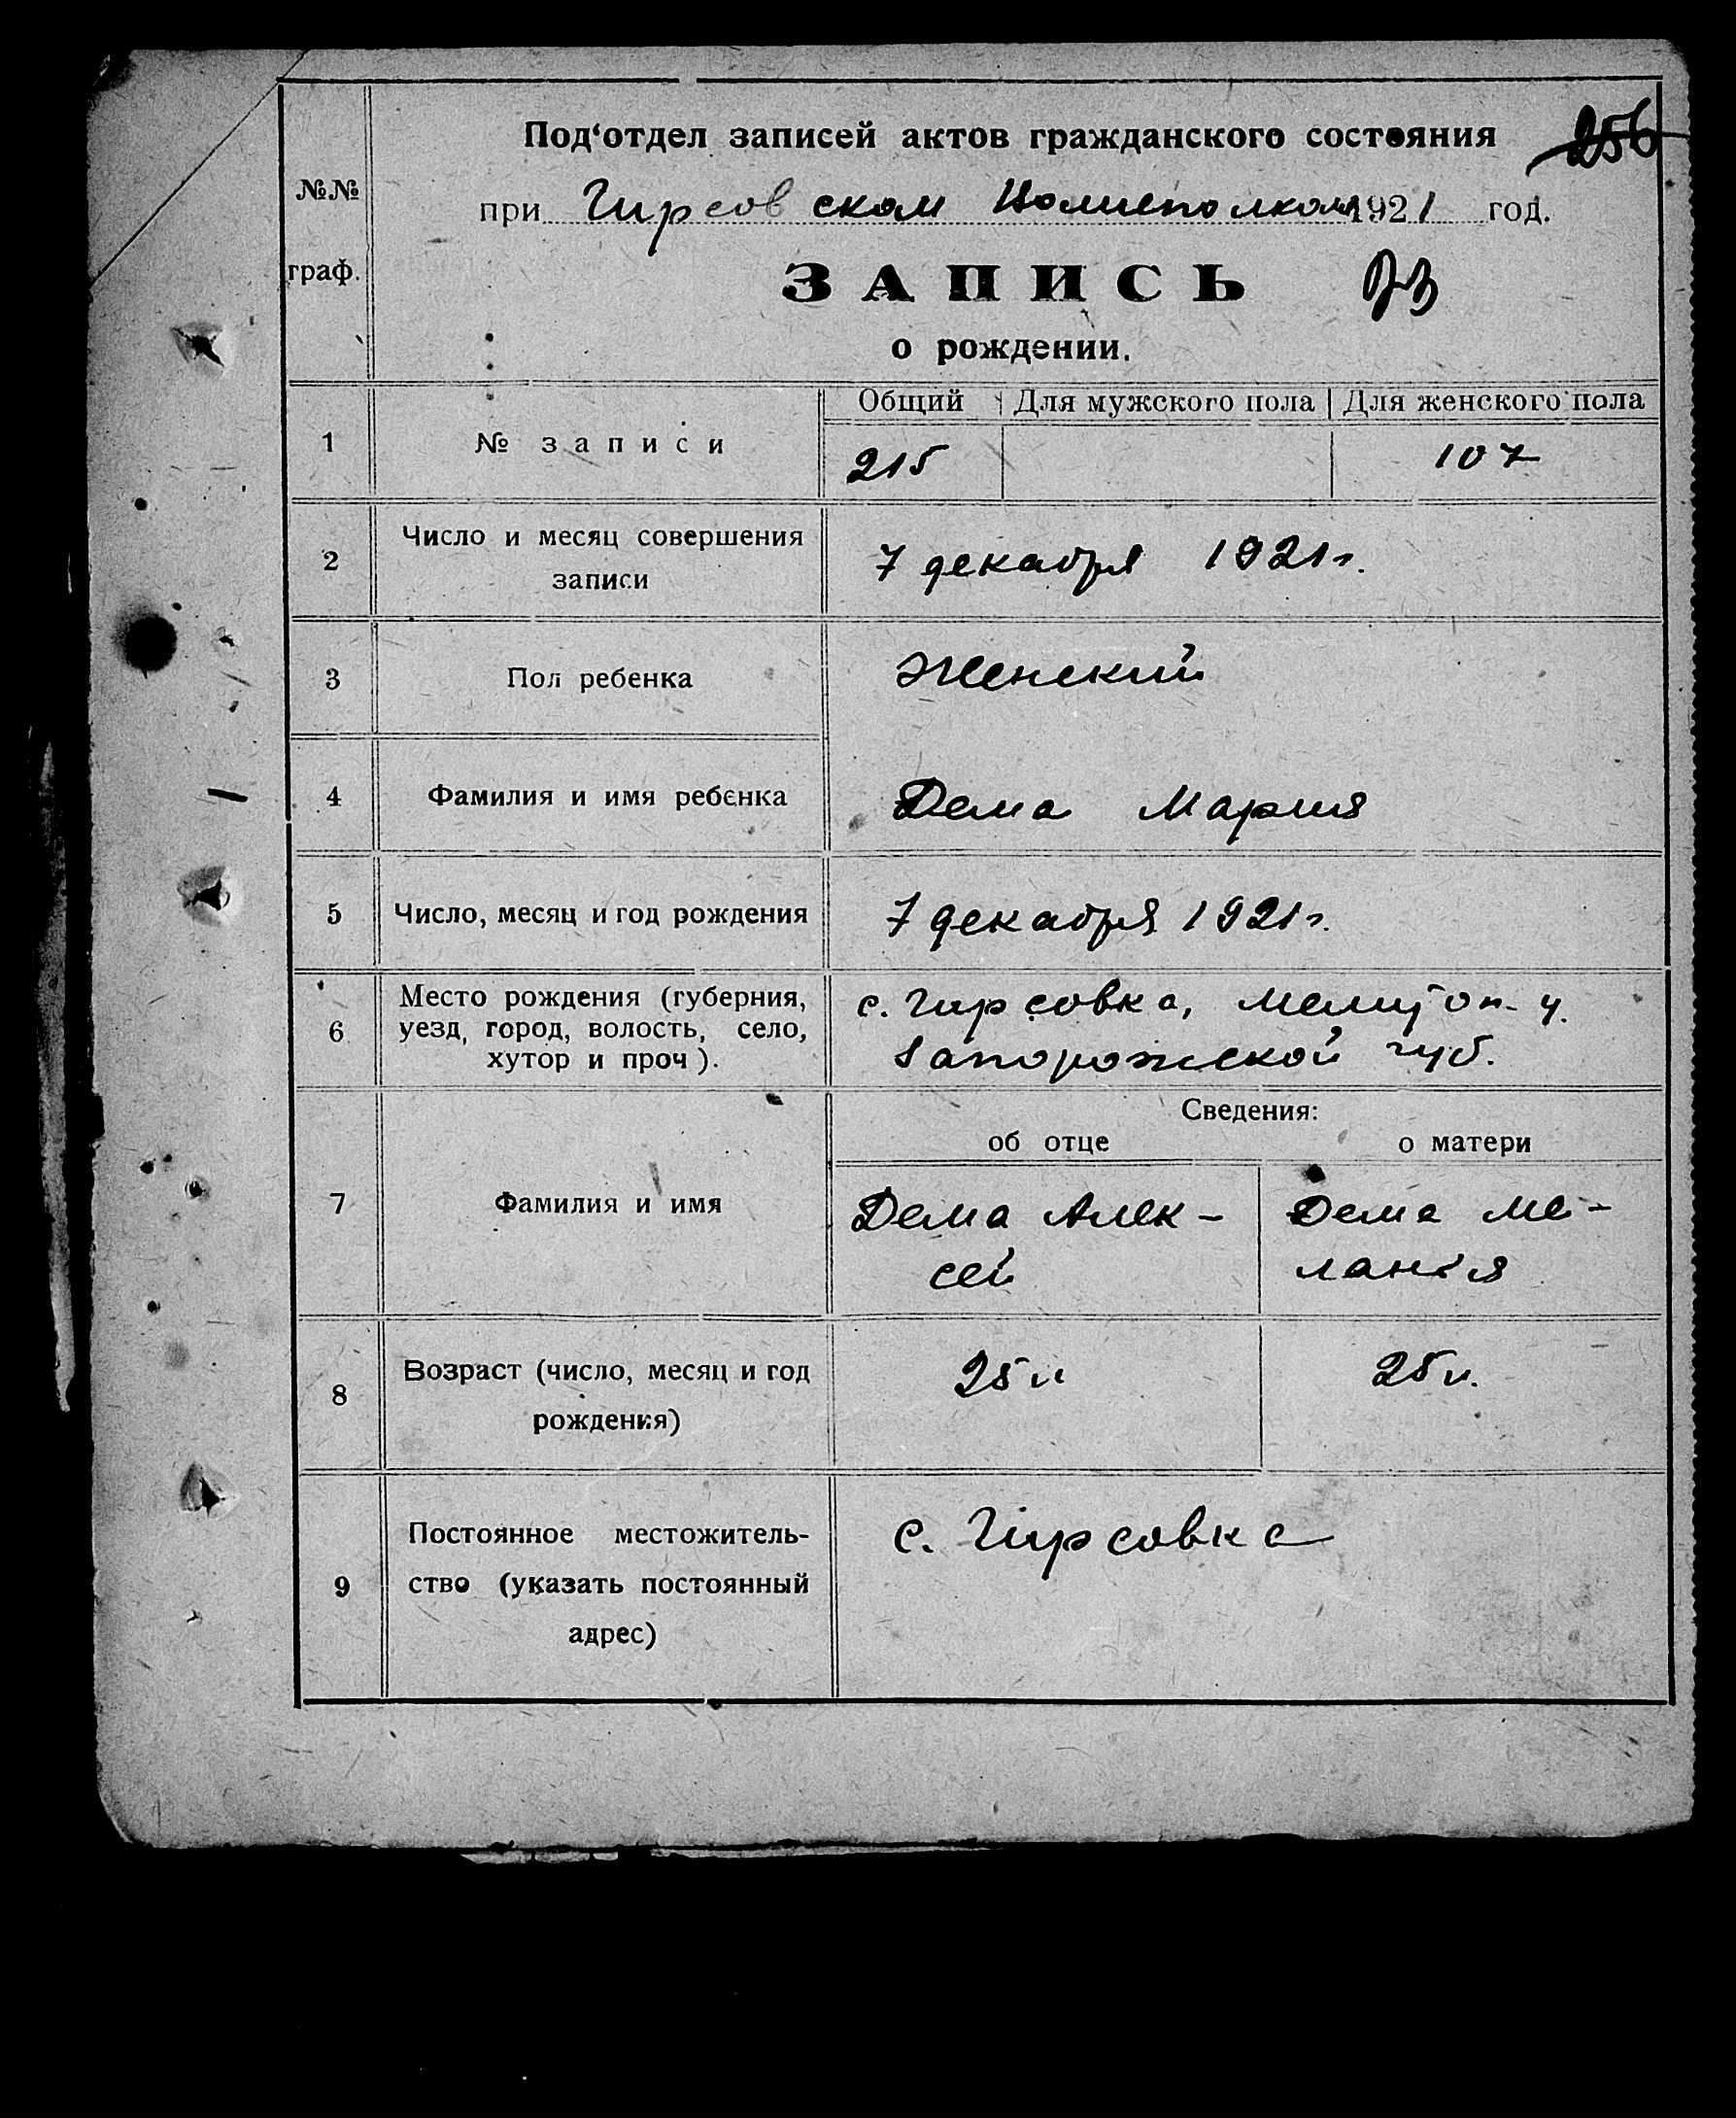 256
Под'отдел записей актов гражданского состояния
при Гирсовском Волисполкоме 1921 год.
№№ граф.
ЗАПИСЬ
о рождении.
Общий Для мужского пола Для женского пола
1 № записи 215 107
2 Число и месяц совершения
записи
7 декабря 1921 г.
3 Пол ребенка Женский
4 Фамилия и имя ребенка Дема Мария
5 Число, месяц и год рождения 7 декабря 1921 г.
6 Место рождения (губерния,
уезд, город, волость, село,
хутор и проч).
с. Гирсовка, Мелитоп. у.
Запорожской губ.
Сведения:
об отце о матери
7 Фамилия и имя
Дема Алек-
сей
Дема Ме-
лания
8 Возраст (число, месяц и год
рождения)
25 л
25 л.
9 Постоянное местожитель-
ство (указать постоянный
адрес)
с. Гирсовка